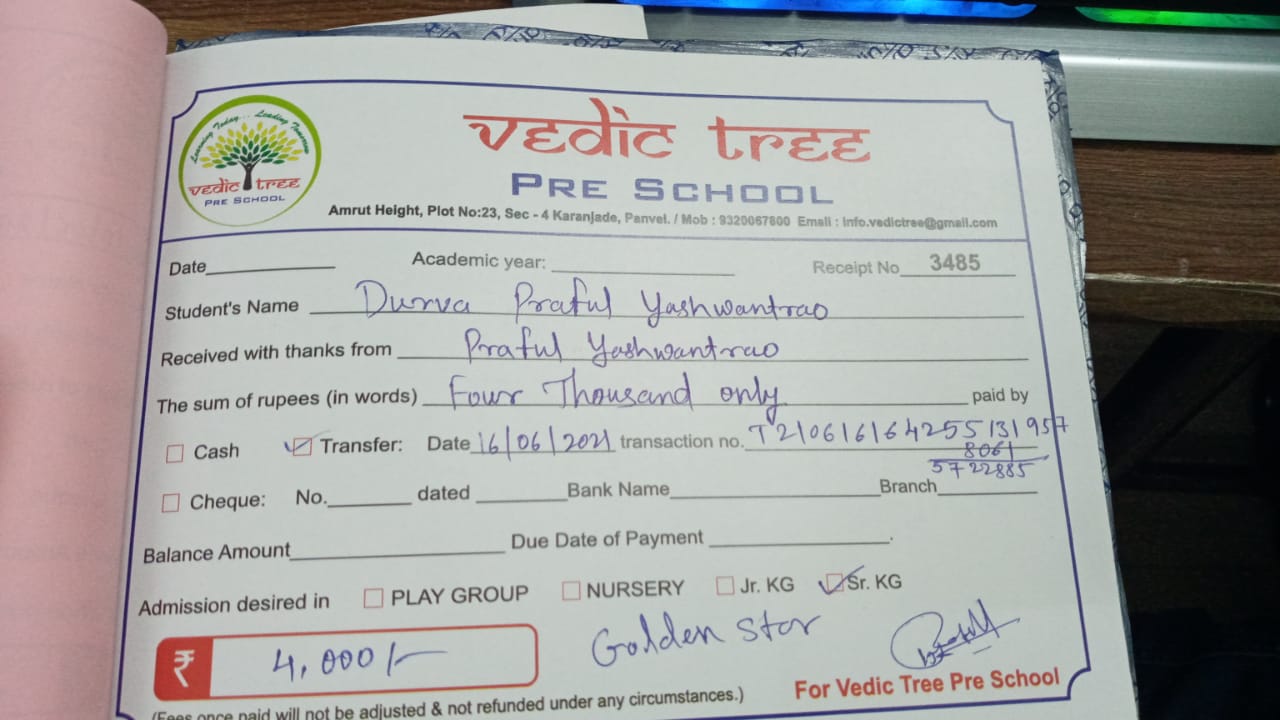 Learning Today... Leading Tomorrow
VEDIC TREE
PRE SCHOOL
VEDIC TREE
PRE SCHOOL
Amrut Height, Plot No:23, Sec - 4 Karanjade, Panvel. / Mob : 9320067800 Email : info.vedictree@gmail.com
Date Academic year: Receipt No 3485
Student's Name Durva Praful Yashwantrao
Received with thanks from Praful Yashwantrao
The sum of rupees (in words) Four Thousand only paid by
Cash Transfer: Date 16/06/2021 transaction no. T210616164255131957
8061
5722885
Cheque: No. dated Bank Name Branch
Balance Amount Due Date of Payment .
Admission desired in PLAY GROUP NURSERY Jr. KG Sr. KG
₹ 4,000/- Golden Star
For Vedic Tree Pre School
(Fees once paid will not be adjusted & not refunded under any circumstances.)